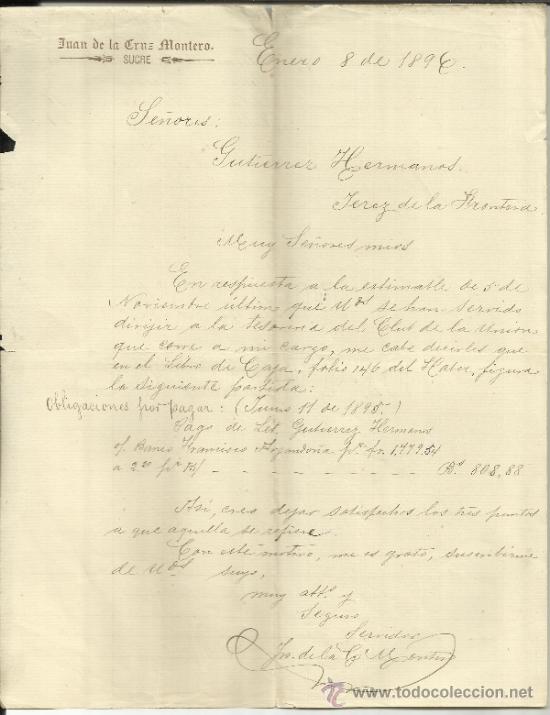 Juan de la Cruz Montero.
SUCRE
Enero 8 de 1896.
Señores:
Gutierrez Hermanos.
Jerez de la Frontera
Muy Señores mios
En respuesta a la estimable de 5 de
Noviembre últim que Uds se han servido
dirijir a la tesoreria del Club de la Union
que corre a mi cargo, me cabe decirles que
en el Libro de Caja, folio 146 del Haber, figura
la siguiente partida:
Obligaciones por pagar: (Junio 11 de 1895.)
Pago de Let. Gutierrez Hermanos
Banco Francisco Argandoña fr. 1,779.54
a B.s 808,88
Así, creo dejar satisfechos los tres puntos
a que aquella se refiere.
Con este motivo, me es grato, suscribirme
de Uds suyo,
muy atto. y
Seguro
Servidor
Jn. de la Cz Montero
www.todocoleccion.net